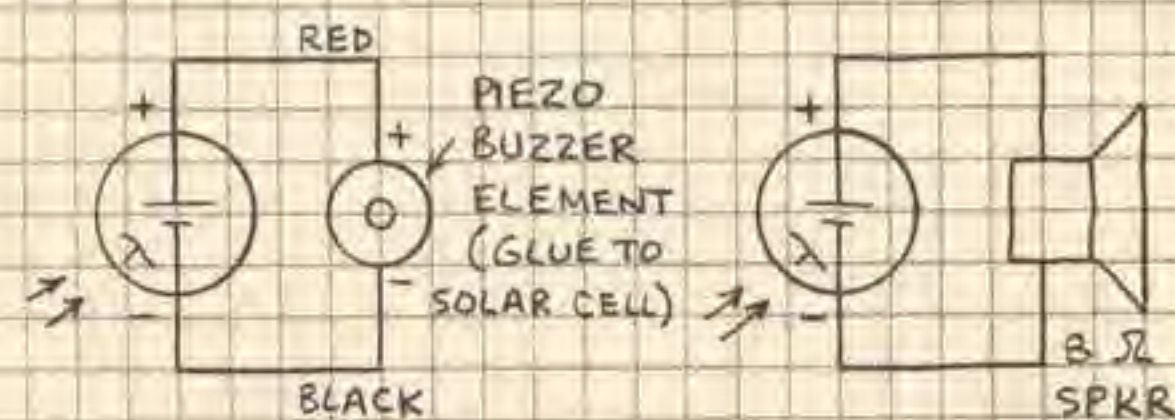 RED
+
+
PIEZO
BUZZER
ELEMENT
(GLUE TO
SOLAR CELL)
λ
-
-
BLACK
+
λ
-
8 Ω
SPKR